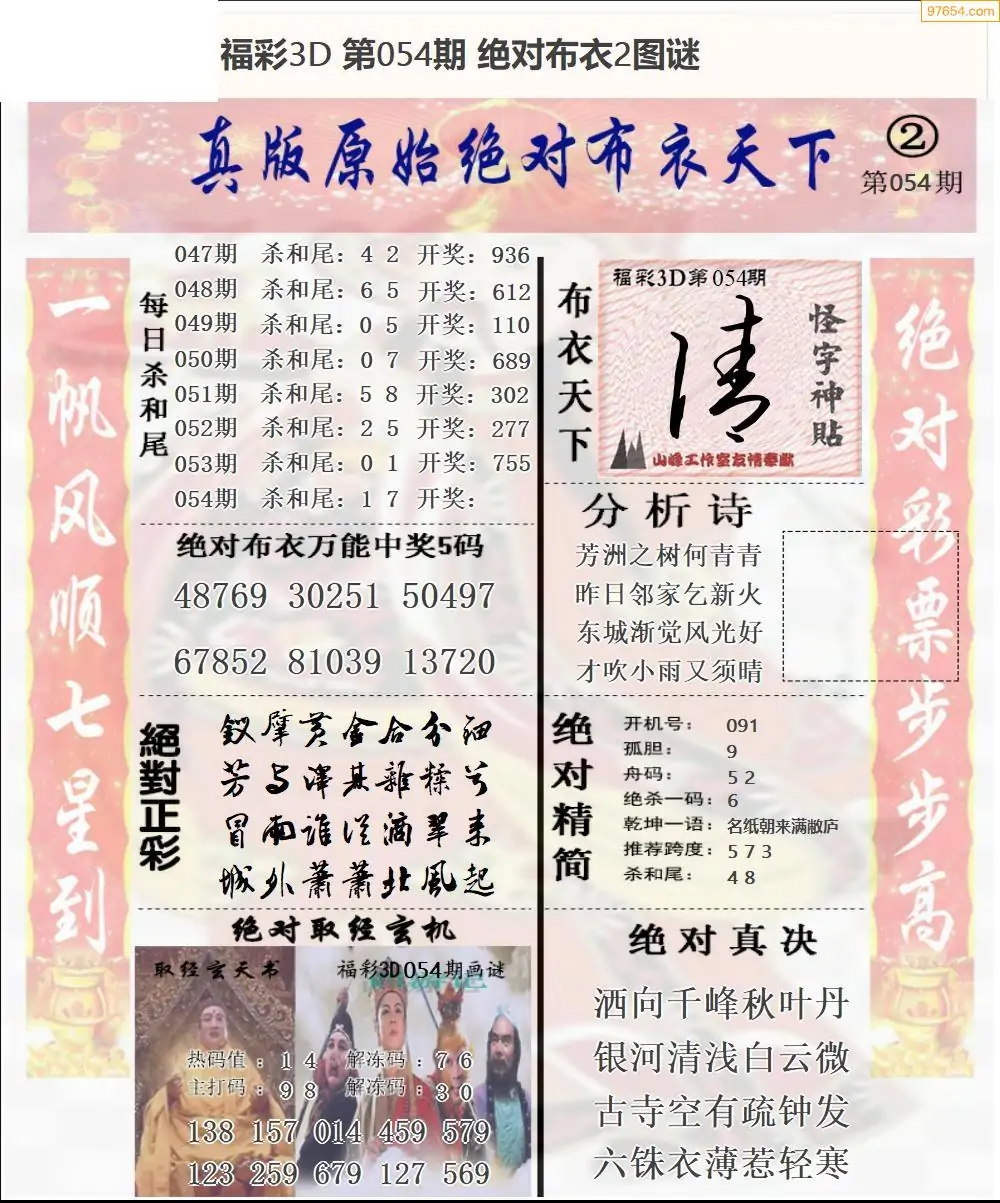 97654.com
福彩3D 第054期 绝对布衣2图谜
真版原始绝对布衣天下
②
第054期
一帆风顺七星到
每日杀和尾
047期 杀和尾：4 2 开奖：936
048期 杀和尾：6 5 开奖：612
049期 杀和尾：0 5 开奖：110
050期 杀和尾：0 7 开奖：689
051期 杀和尾：5 8 开奖：302
052期 杀和尾：2 5 开奖：277
053期 杀和尾：0 1 开奖：755
054期 杀和尾：1 7 开奖：
绝对布衣万能中奖5码
48769 30251 50497
67852 81039 13720
絕對正彩
釵擘黄金合分细
芳与泽其雜糅兮
冒雨谁从滴翠来
城外萧萧北風起
绝对取经玄机
取经玄天书
福彩3D054期画谜
热码值：1 4 解冻码：7 6
主打码：9 8 解冻码：3 0
138 157 014 459 579
123 259 679 127 569
布衣天下
福彩3D第054期
清
怪字神贴
山峰工作室友情奉献
分析诗
芳洲之树何青青
昨日邻家乞新火
东城渐觉风光好
才吹小雨又须晴
绝对精简
开机号：091
孤胆：9
舟码：5 2
绝杀一码：6
乾坤一语：名纸朝来满敝庐
推荐跨度：5 7 3
杀和尾：4 8
绝对真决
洒向千峰秋叶丹
银河清浅白云微
古寺空有疏钟发
六铢衣薄惹轻寒
绝对彩票步步高